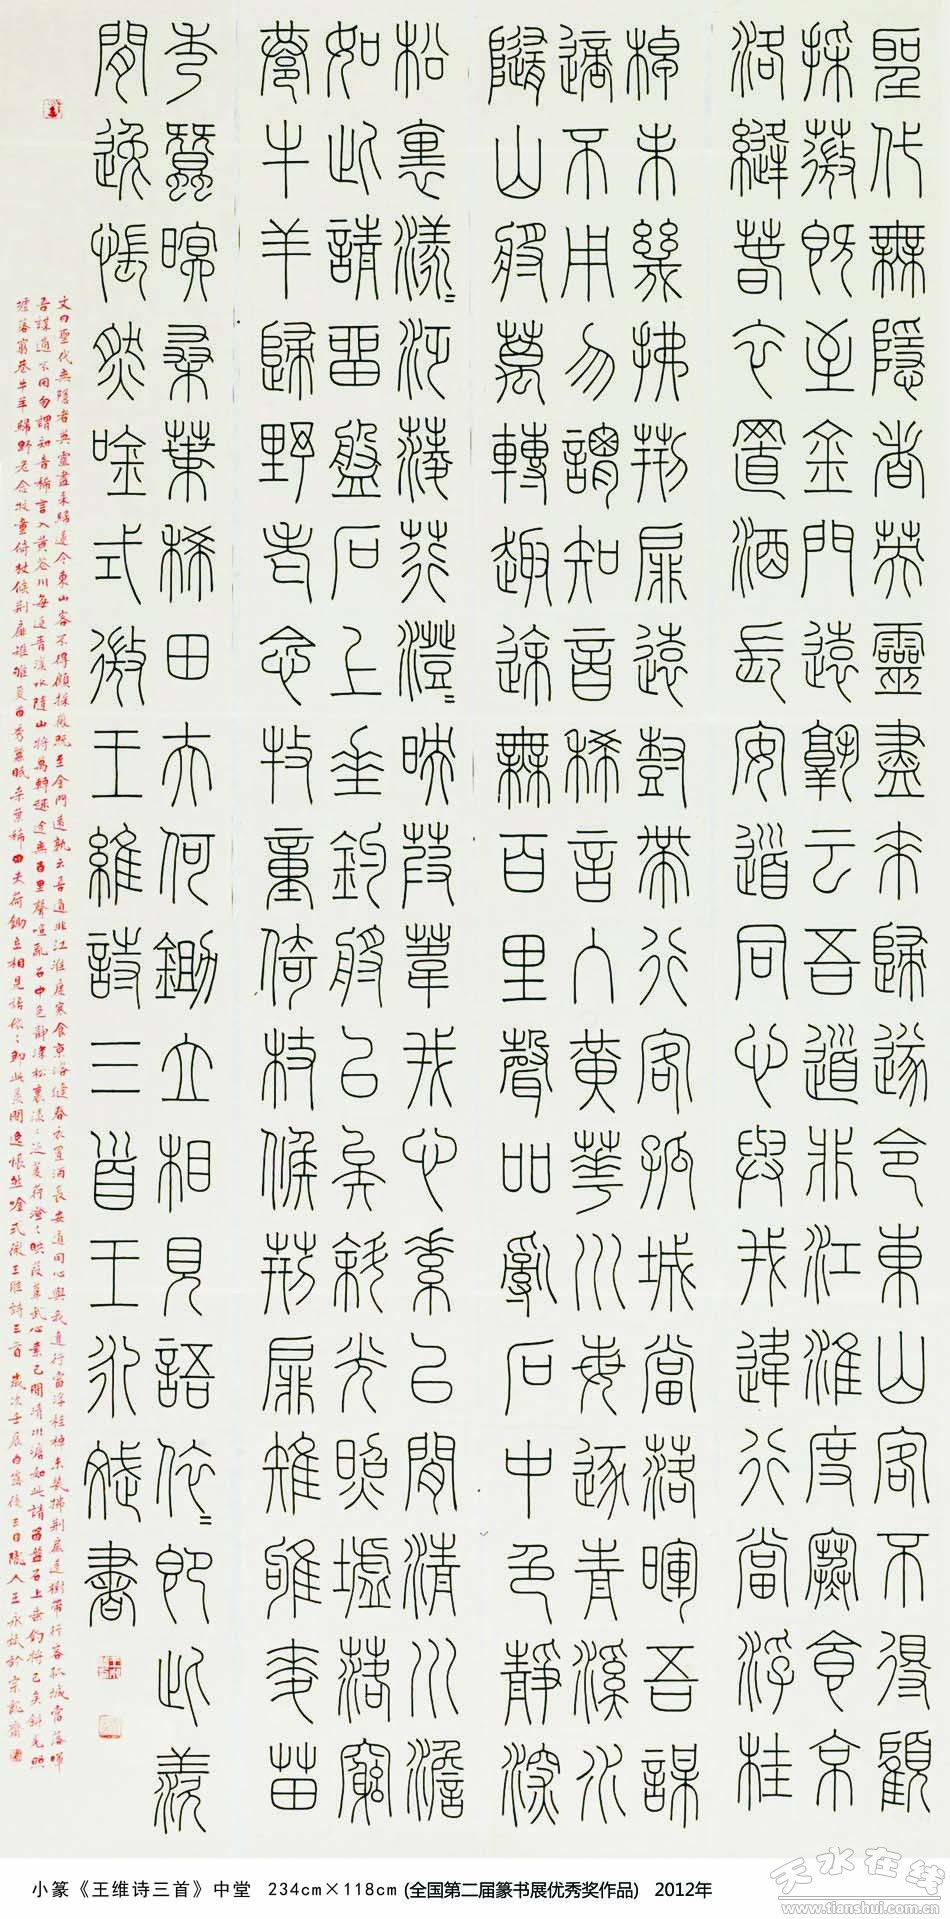 聖代無隱者英靈盡來歸遂令東山客不得顧
採薇既至金門遠孰云吾道非江淮度寒食京
洛縫春衣置酒長安道同心與我違行當浮桂
棹未幾拂荊扉遠樹帶行客孤城當落暉吾謀
適不用勿謂知音稀言入黃華川每逐青溪水
隨山將萬轉趣途無百里聲喧亂石中色靜深
松裏漾〻泛菱荇澄〻映葭葦我心素已閒清川澹
如此請留盤石上垂釣將已矣斜光照墟落窮
巷牛羊歸野老念牧童倚杖候荊扉雉雊麥苗
秀蠶眠桑葉稀田夫荷鋤立相見語依〻即此羨
閒逸悵然吟式微王維詩三首王永斌書
文曰聖代無隱者英靈盡來歸遂令東山客不得顧採薇既至金門遠孰云吾道非江淮度寒食京洛縫春衣置酒長安道同心與我違行當浮桂棹未幾拂荊扉遠樹帶行客孤城當落暉
吾謀適不用勿謂知音稀言入黃花川每逐青溪水隨山將萬轉趣途無百里聲喧亂石中色靜深松裏漾〻泛菱荇澄〻映葭葦我心素已閒清川澹如此請留盤石上垂釣將已矣斜光照
墟落窮巷牛羊歸野老念牧童倚杖候荊扉雉雊麥苗秀蠶眠桑葉稀田夫荷鋤立相見語依〻即此羨閒逸悵然吟式微王維詩三首 歲次壬辰白露後三日隴人王永斌於宗甄齋
小篆《王维诗三首》中堂 234cm×118cm (全国第二届篆书展优秀奖作品) 2012年
天水在线
www.tianshui.com.cn